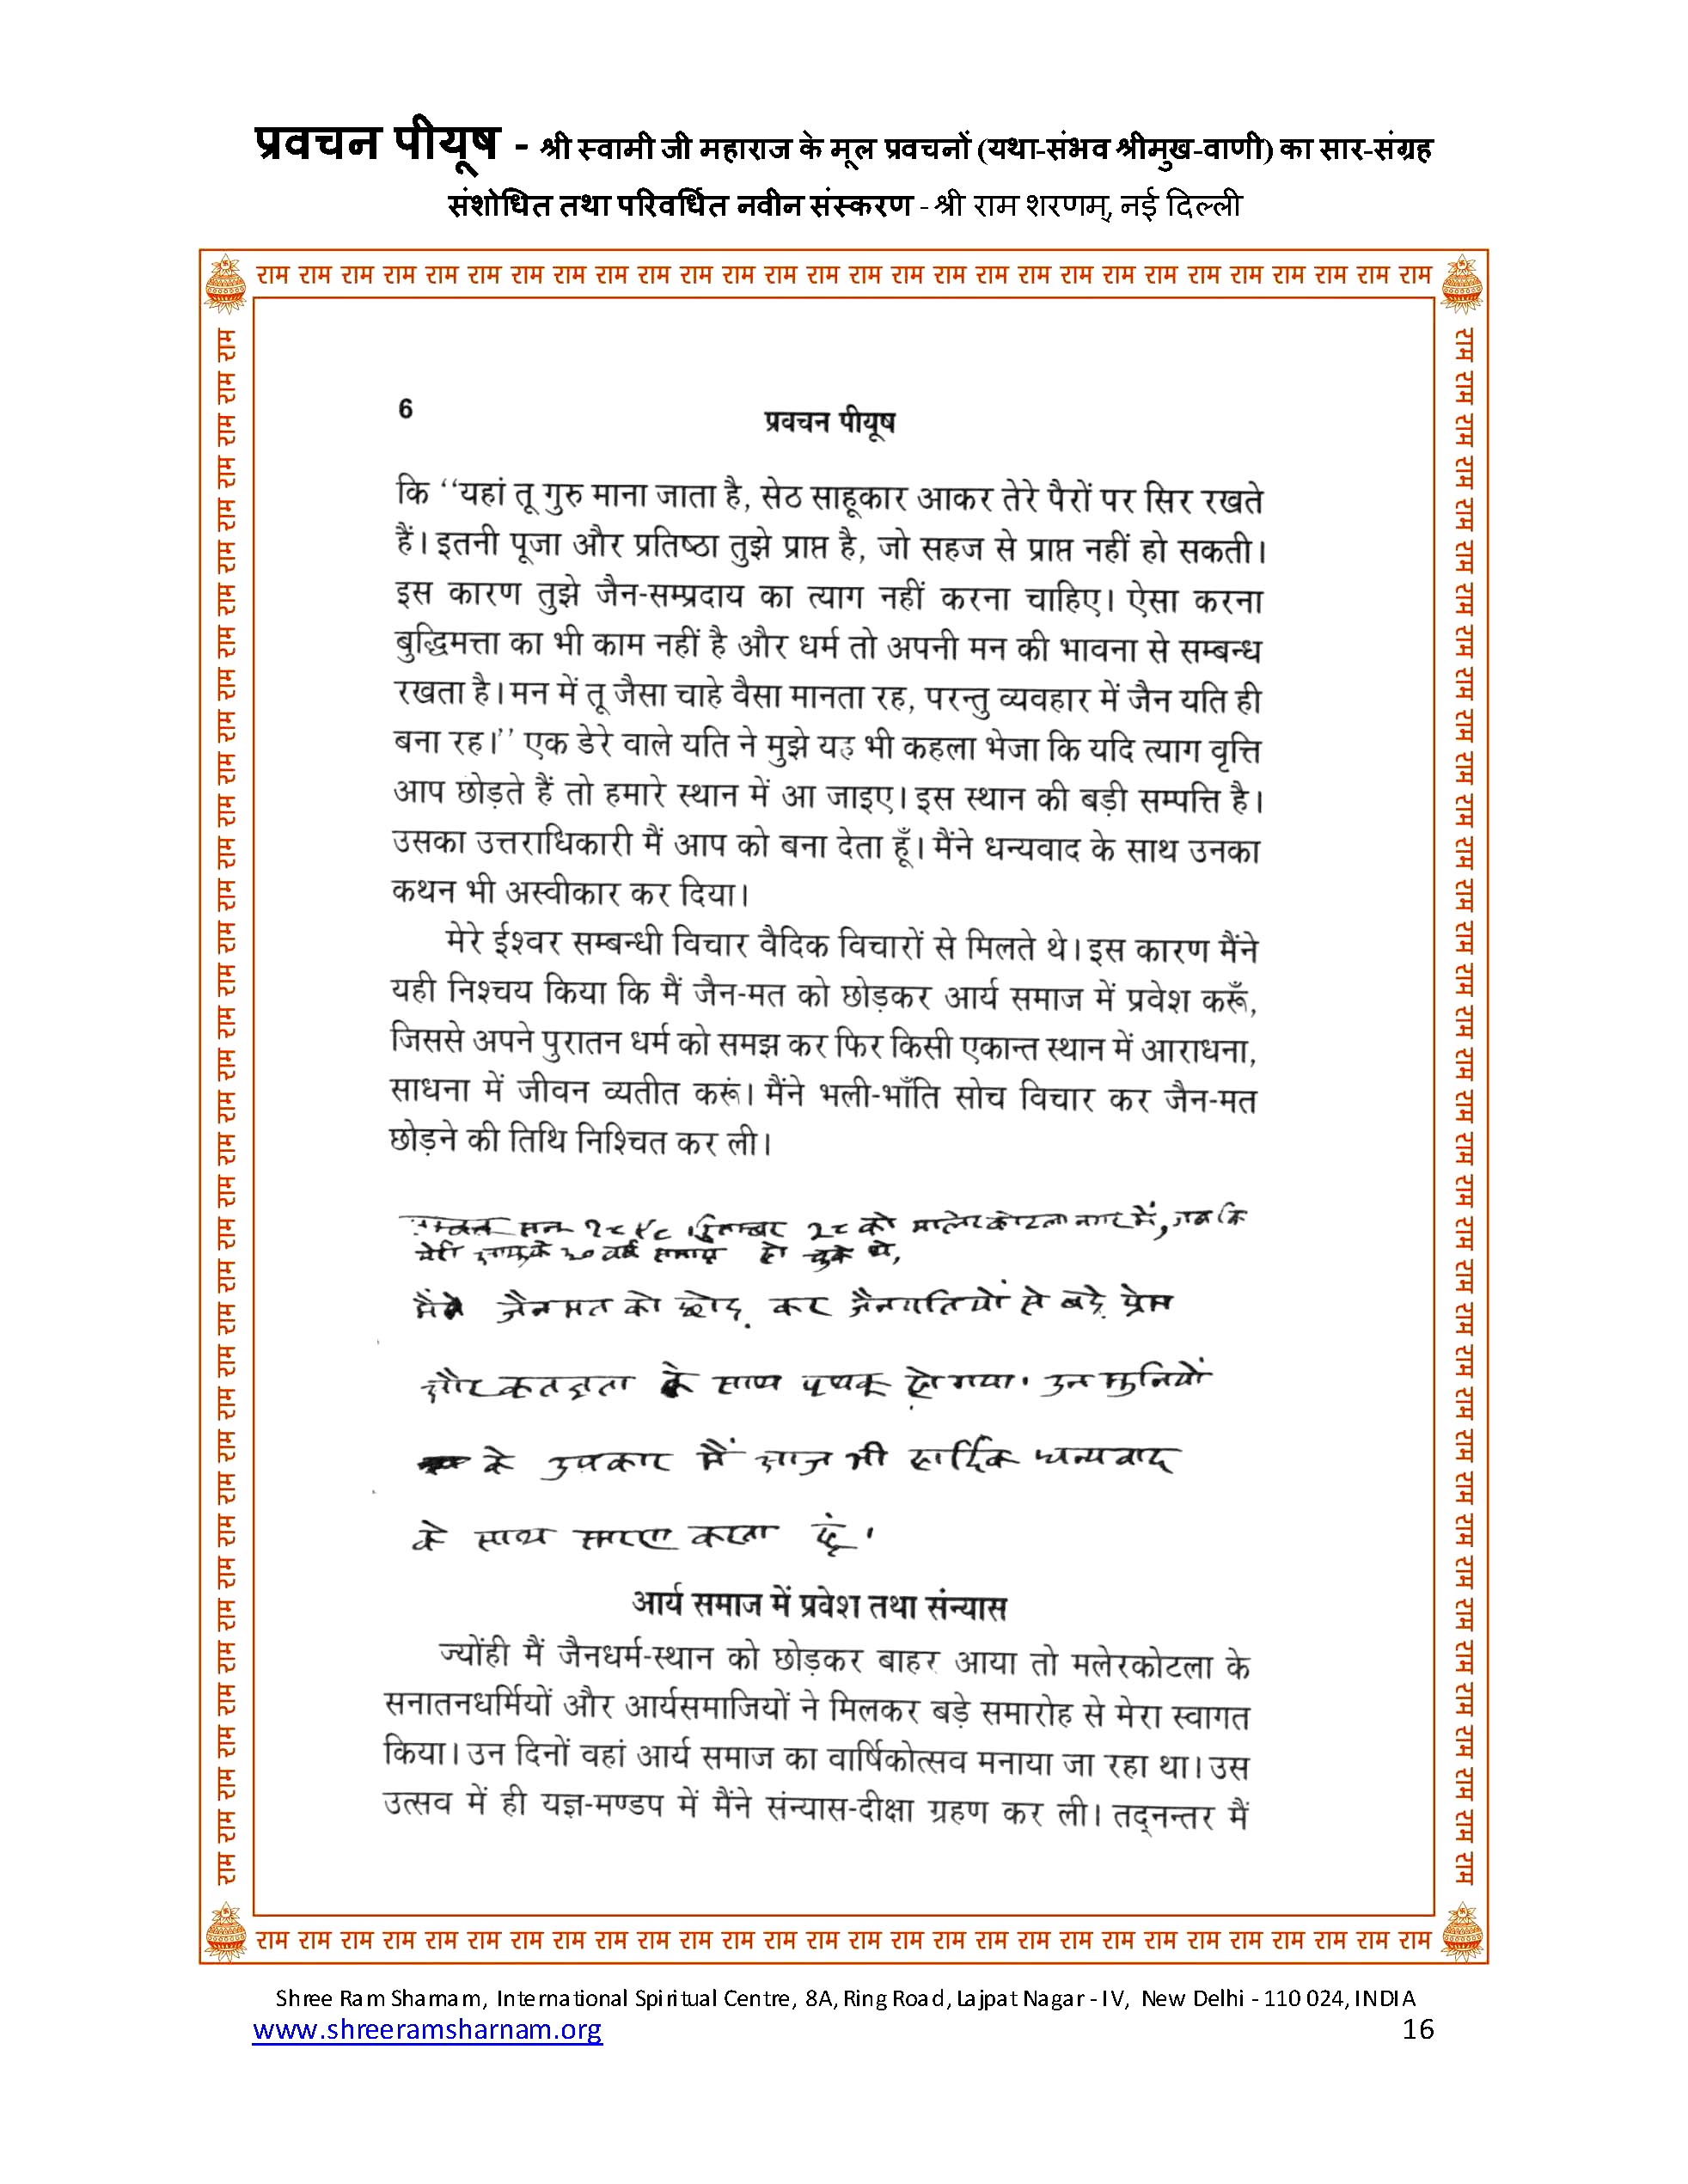 प्रवचन पीयूष - श्री स्वामी जी महाराज के मूल प्रवचनों (यथा-संभव श्रीमुख-वाणी) का सार-संग्रह
संशोधित तथा परिवर्धित नवीन संस्करण - श्री राम शरणम्, नई दिल्ली
राम राम राम राम राम राम राम राम राम राम राम राम राम राम राम राम राम राम राम राम राम राम राम राम राम राम राम राम
6
प्रवचन पीयूष
कि “यहां तू गुरु माना जाता है, सेठ साहूकार आकर तेरे पैरों पर सिर रखते
हैं। इतनी पूजा और प्रतिष्ठा तुझे प्राप्त है, जो सहज से प्राप्त नहीं हो सकती।
इस कारण तुझे जैन-सम्प्रदाय का त्याग नहीं करना चाहिए। ऐसा करना
बुद्धिमत्ता का भी काम नहीं है और धर्म तो अपनी मन की भावना से सम्बन्ध
रखता है। मन में तू जैसा चाहे वैसा मानता रह, परन्तु व्यवहार में जैन यति ही
बना रह।” एक डेरे वाले यति ने मुझे यह भी कहला भेजा कि यदि त्याग वृत्ति
आप छोड़ते हैं तो हमारे स्थान में आ जाइए। इस स्थान की बड़ी सम्पत्ति है।
उसका उत्तराधिकारी मैं आप को बना देता हूँ। मैंने धन्यवाद के साथ उनका
कथन भी अस्वीकार कर दिया।
मेरे ईश्वर सम्बन्धी विचार वैदिक विचारों से मिलते थे। इस कारण मैंने
यही निश्चय किया कि मैं जैन-मत को छोड़कर आर्य समाज में प्रवेश करूँ,
जिससे अपने पुरातन धर्म को समझ कर फिर किसी एकान्त स्थान में आराधना,
साधना में जीवन व्यतीत करूं। मैंने भली-भाँति सोच विचार कर जैन-मत
छोड़ने की तिथि निश्चित कर ली।
सन को मालेरकोटला नगर में, जब कि
मेरी आयु के ३० वर्ष समाप्त हो चुके थे,
मैंने जैनमत को छोड़ कर जैनयतियों से बड़े प्रेम
और कृतज्ञता के साथ पृथक् हो गया। उन मुनियों
के उपकार मैं आज भी हार्दिक धन्यवाद
के साथ स्मरण करता हूं।
आर्य समाज में प्रवेश तथा संन्यास
ज्योंही मैं जैनधर्म-स्थान को छोड़कर बाहर आया तो मलेरकोटला के
सनातनधर्मियों और आर्यसमाजियों ने मिलकर बड़े समारोह से मेरा स्वागत
किया। उन दिनों वहां आर्य समाज का वार्षिकोत्सव मनाया जा रहा था। उस
उत्सव में ही यज्ञ-मण्डप में मैंने संन्यास-दीक्षा ग्रहण कर ली। तद्नन्तर मैं
राम राम राम राम राम राम राम राम राम राम राम राम राम राम राम राम राम राम राम राम राम राम राम राम राम राम राम राम
Shree Ram Sharnam, International Spiritual Centre, 8A, Ring Road, Lajpat Nagar - IV, New Delhi - 110 024, INDIA
www.shreeramsharnam.org
16